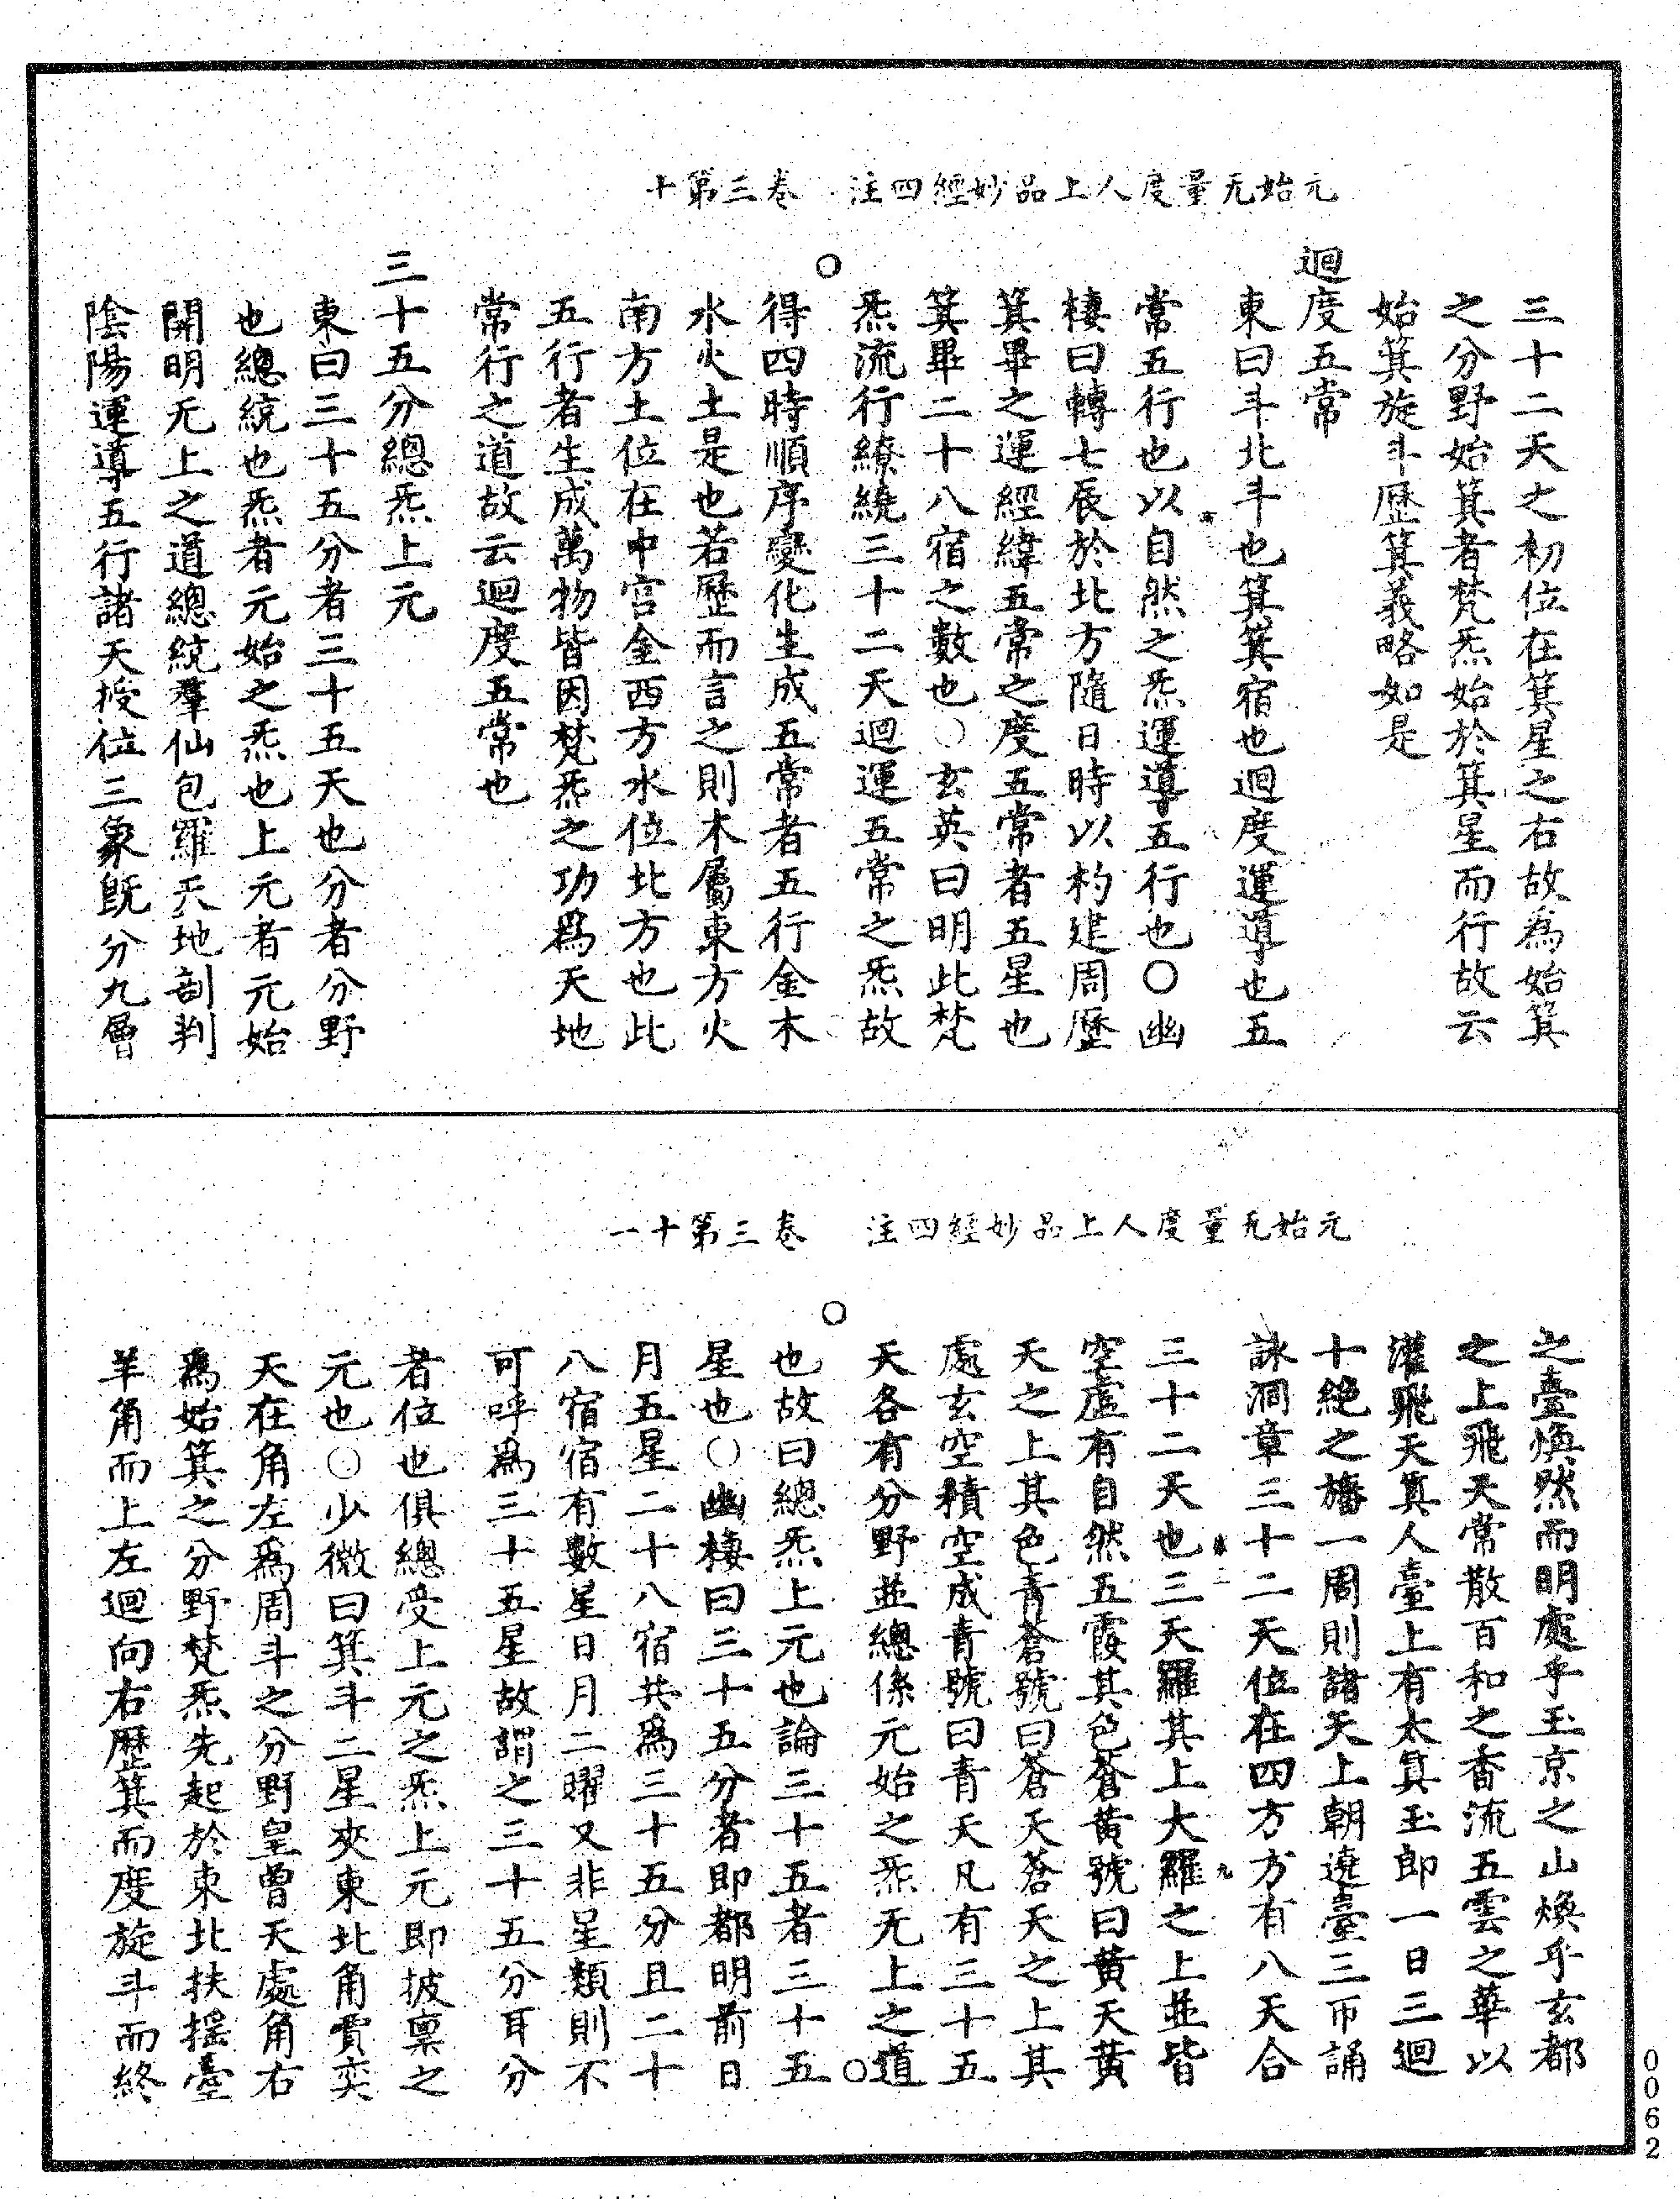 元始无量度人上品妙經四注　卷三第十
三十二天之初位在箕星之右故為始箕
之分野始箕者梵炁始於箕星而行故云
始箕旋斗歷箕義略如是
迴度五常
東曰斗北斗也箕箕宿也迴度運導也五
常五行也以自然之炁運導五行也○幽
棲曰轉七辰於北方隨日時以杓建周歷
箕畢之運經緯五常之度五常者五星也
箕畢二十八宿之數也○玄英曰明此梵
炁流行繚繞三十二天迴運五常之炁故
得四時順序變化生成五常者五行金木
水火土是也若歷而言之則木屬東方火
南方土位在中宮金西方水位北方也此
五行者生成萬物皆因梵炁之功爲天地
常行之道故云迴度五常也
三十五分總炁上元
東曰三十五分者三十五天也分者分野
也總統也炁者元始之炁也上元者元始
開明无上之道總統羣仙包羅天地剖判
陰陽運導五行諸天授位三象旣分九層
元始无量度人上品妙經四注　卷三第十一
之臺煥然而明處乎玉京之山煥乎玄都
之上飛天常散百和之香流五雲之華以
灌飛天真人臺上有太真玉郎一日三迴
十絕之旛一周則諸天上朝遶臺三帀誦
詠洞章三十二天位在四方方有八天合
三十二天也三天羅其上大羅之上並皆
空虛有自然五霞其色蒼黃號曰黃天黃
天之上其色青蒼號曰蒼天蒼天之上其
處玄空積空成青號曰青天凡有三十五
天各有分野並總係元始之炁无上之道
也故曰總炁上元也論三十五者三十五
星也○幽棲曰三十五分者即都明前日
月五星二十八宿共爲三十五分且二十
八宿宿有數星日月二曜又非星類則不
可呼爲三十五星故謂之三十五分耳分
者位也俱總受上元之炁上元即披禀之
元也○少微曰箕斗二星夾東北角賈奕
天在角左爲周斗之分野皇曾天處角右
爲始箕之分野梵炁先起於東北扶摇臺
羊角而上左迴向右歷箕而度旋斗而終
0062